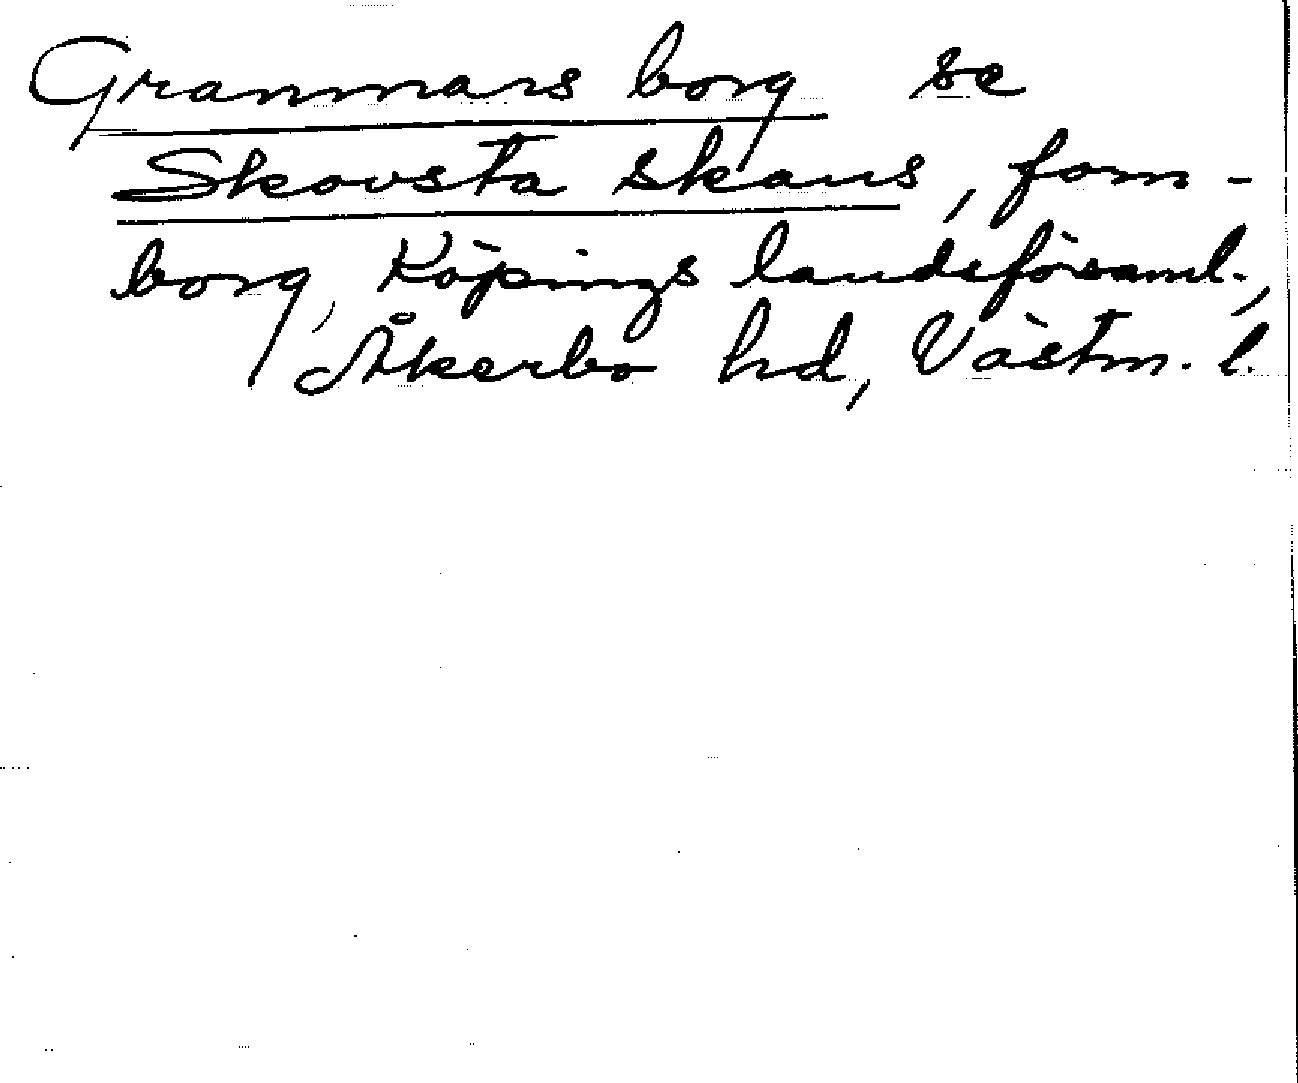 Granmars borg se
Skovsta skans, forn-
borg, Köpings landsförsaml.,
Åkerbo hd, Västm. l.